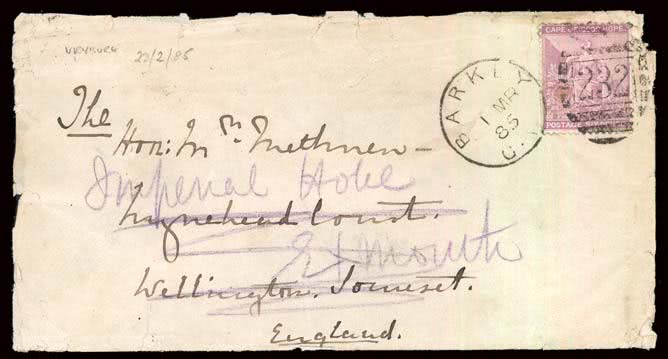 VRYBURG 23/2/85
CAPE OF GOOD HOPE
232
POSTAGE SIX
BARKLY
1 MR
85
The
Hon: Mrs Methuen –
Imperial Hotel
Nynehead Court.
Exmouth
Wellington. Somerset.
England.